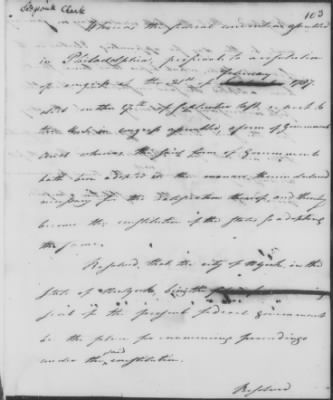 Clark
103
Whereas the federal convention assembled
in Philadelphia, pursuant to a resolution
of congress of the 21st of February 1787
did on the 17th of September last report to
the United States in congress assembled, a form of Government
And whereas the said form of Government
hath been adopted in the manner therein declared
necessary for the ratification thereof, and thereby
become the constitution of the States so adopting
the same.
Resolved, that the city of NYork, in the
State of NewYork, being the
seat of the present federal Government
be the place for commencing proceedings
under the said constitution.
Resolved